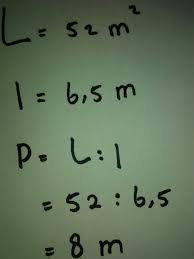 L = 52 m²
l = 6,5 m
P = L : l
= 52 : 6,5
= 8 m